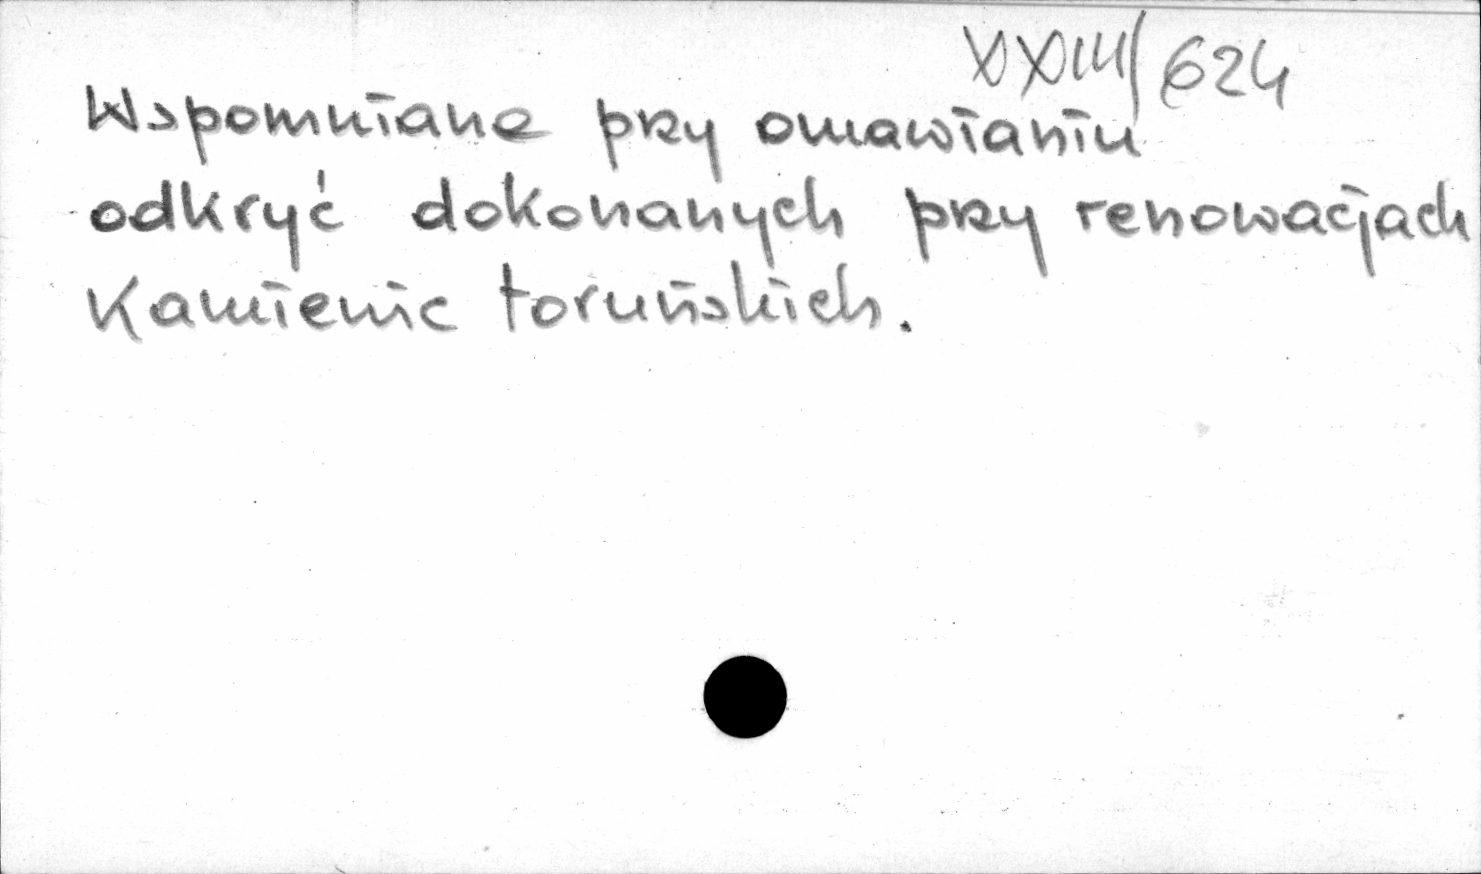 XXIII/624
Wspomniane przy omawianiu
odkryć dokonanych przy renowacjach
kamienic toruńskich.